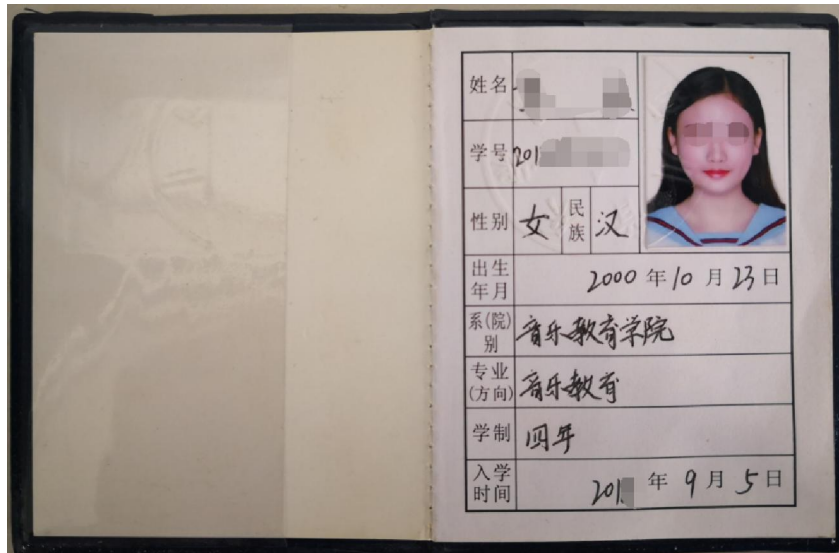 姓名
学号 201
性别 女 民族 汉
出生年月 2000 年 10 月 23 日
系(院)别 音乐教育学院
专业(方向) 音乐教育
学制 四年
入学时间 201 年 9 月 5 日